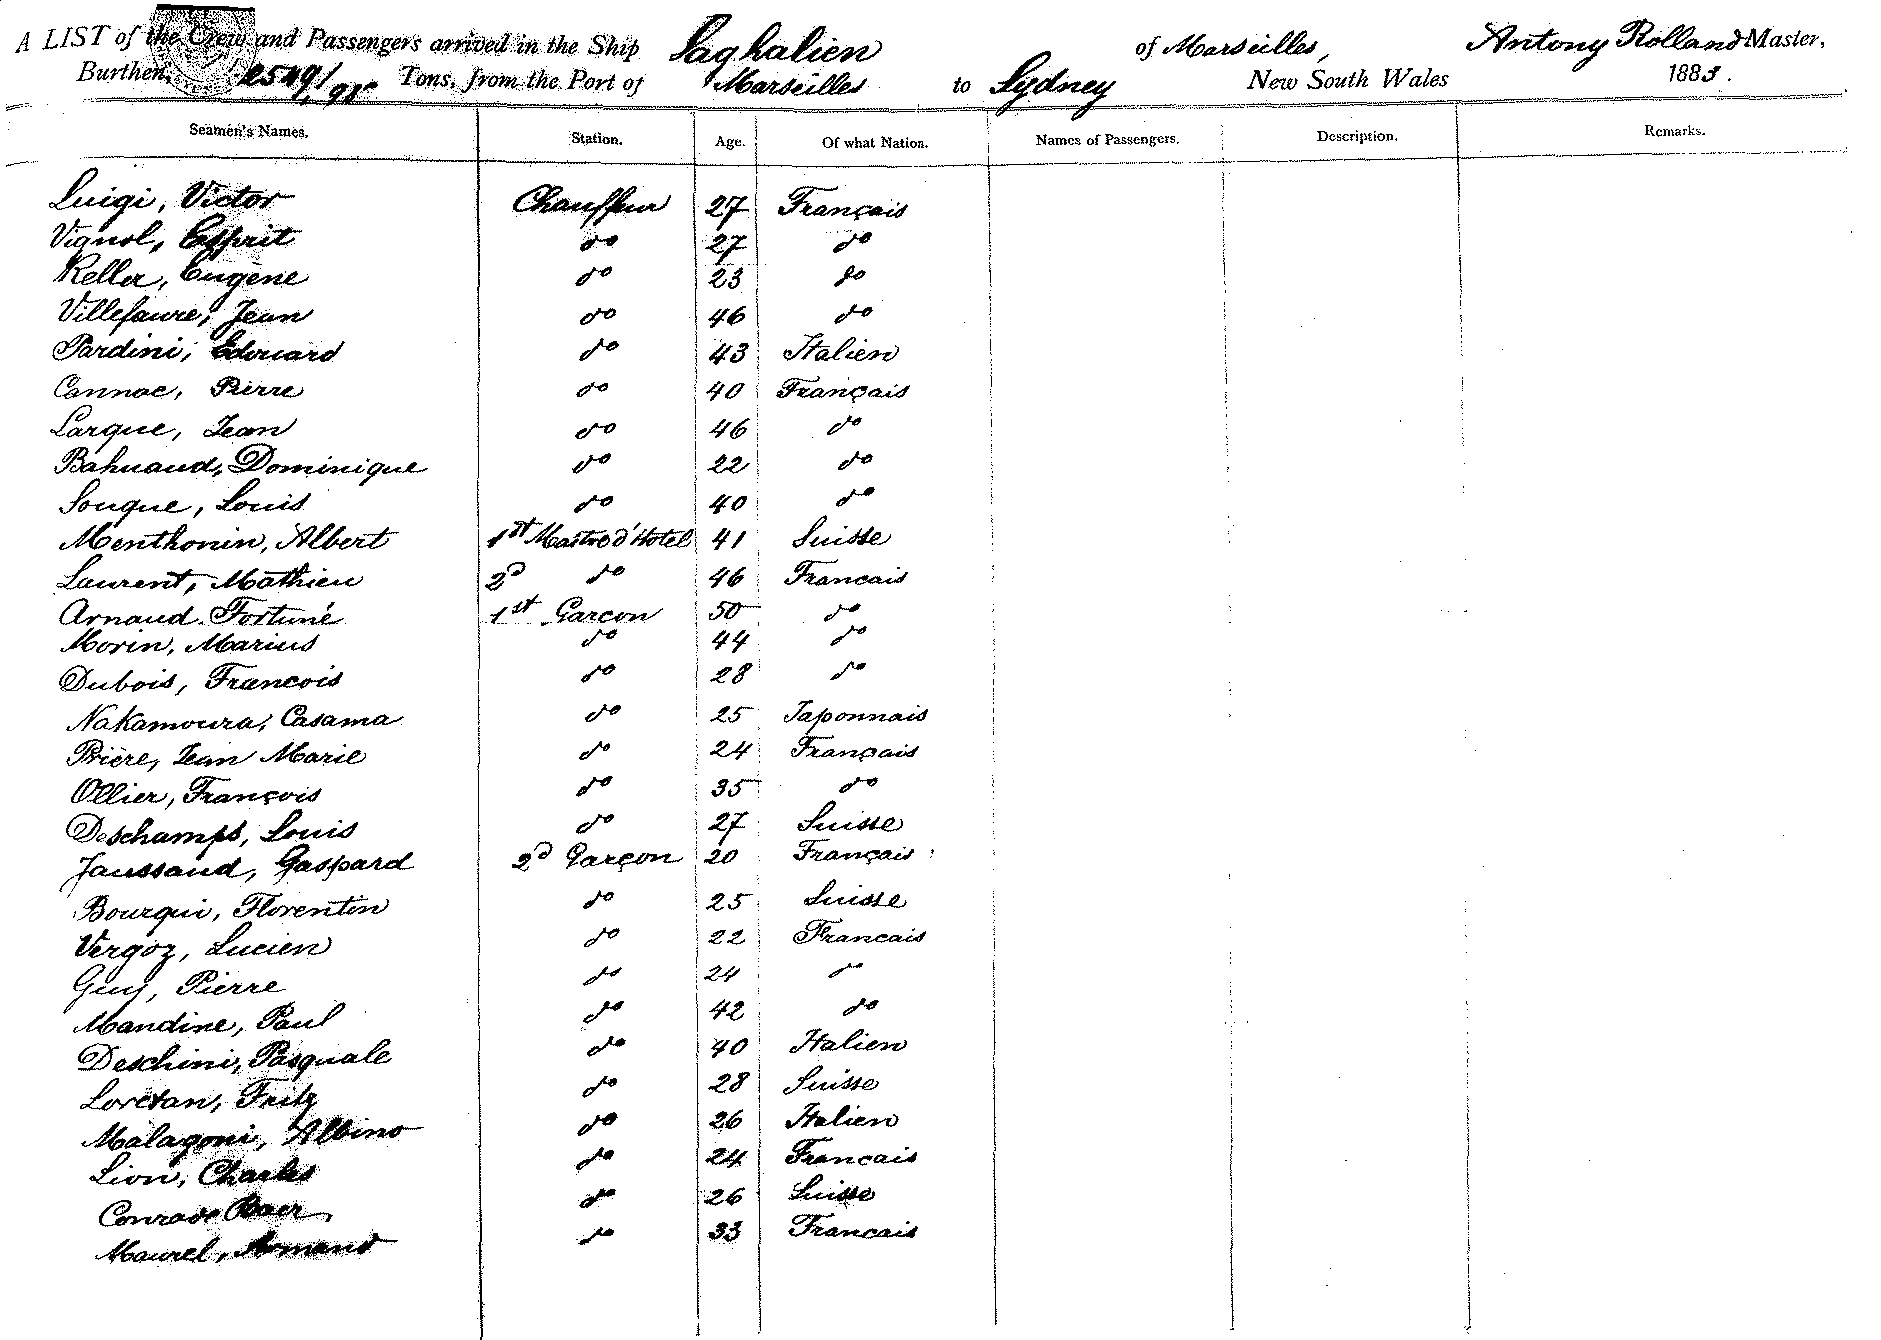 A LIST of the Crew and Passengers arrived in the Ship Saghalien of Marseilles, Antony Rolland Master,
Burthen, 2549/ Tons, from the Port of Marseilles to Sydney New South Wales 1883.
Seamen's Names. Station. Age. Of what Nation. Names of Passengers. Description. Remarks.
Luigi, Victor Chauffeur 27 Français
Vignol, Esprit do 27 do
Keller, Eugène do 23 do
Villefaure, Jean do 46 do
Pardini, Edouard do 43 Italien
Cannac, Pierre do 40 Français
Larque, Jean do 46 do
Bahuaud, Dominique do 22 do
Souque, Louis do 40 do
Menthonin, Albert 1st Maitre d'Hotel 41 Suisse
Laurent, Mathieu 2d do 46 Francais
Arnaud Fortuné 1st Garcon 50 do
Morin, Marius do 44 do
Dubois, Francois do 28 do
Nakamoura, Casama do 25 Japonnais
Prière, Jean Marie do 24 Français
Ollier, François do 35 do
Deschamps, Louis do 27 Suisse
Jaussaud, Gaspard 2d Garçon 20 Français
Bourqui, Florentin do 25 Suisse
Vergoz, Lucien do 22 Francais
Guy, Pierre do 24 do
Mandine, Paul do 42 do
Deschini, Pasquale do 40 Italien
Loretan, Fritz do 28 Suisse
Malagoni, Albino do 26 Italien
Lion, Charles do 24 Francais
Conrade Baer, do 26 Suisse
Maurel, Armand do 33 Francais